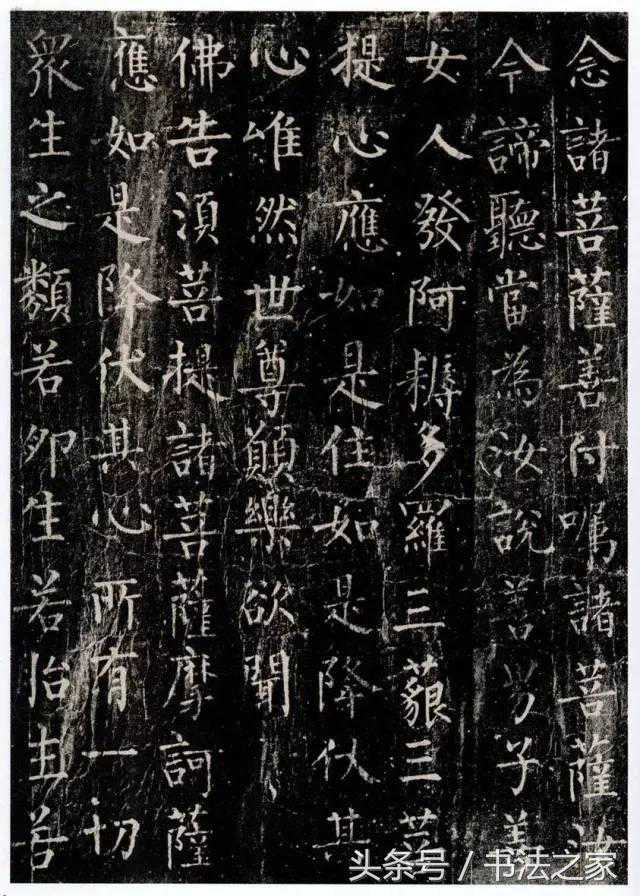 念諸菩薩善付囑諸菩薩汝
今諦聽當為汝說善男子善
女人發阿耨多羅三藐三菩
提心應如是住如是降伏其
心唯然世尊願樂欲聞
佛告須菩提諸菩薩摩訶薩
應如是降伏其心所有一切
衆生之類若卵生若胎生若
头条号 / 书法之家